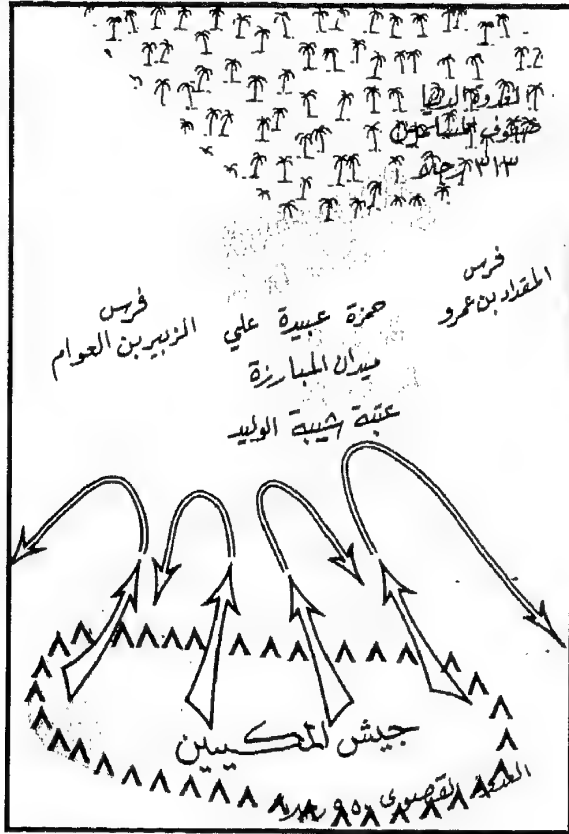 العدوة الدنيا
صفوف المسلمين
٣١٣ رجلاً
فرس
المقداد بن عمرو
فرس
الزبير بن العوام
حمزة عبيدة علي
ميدان المبارزة
عتبة شيبة الوليد
جيش المكيين
العدوة القصوى ٩٥٠